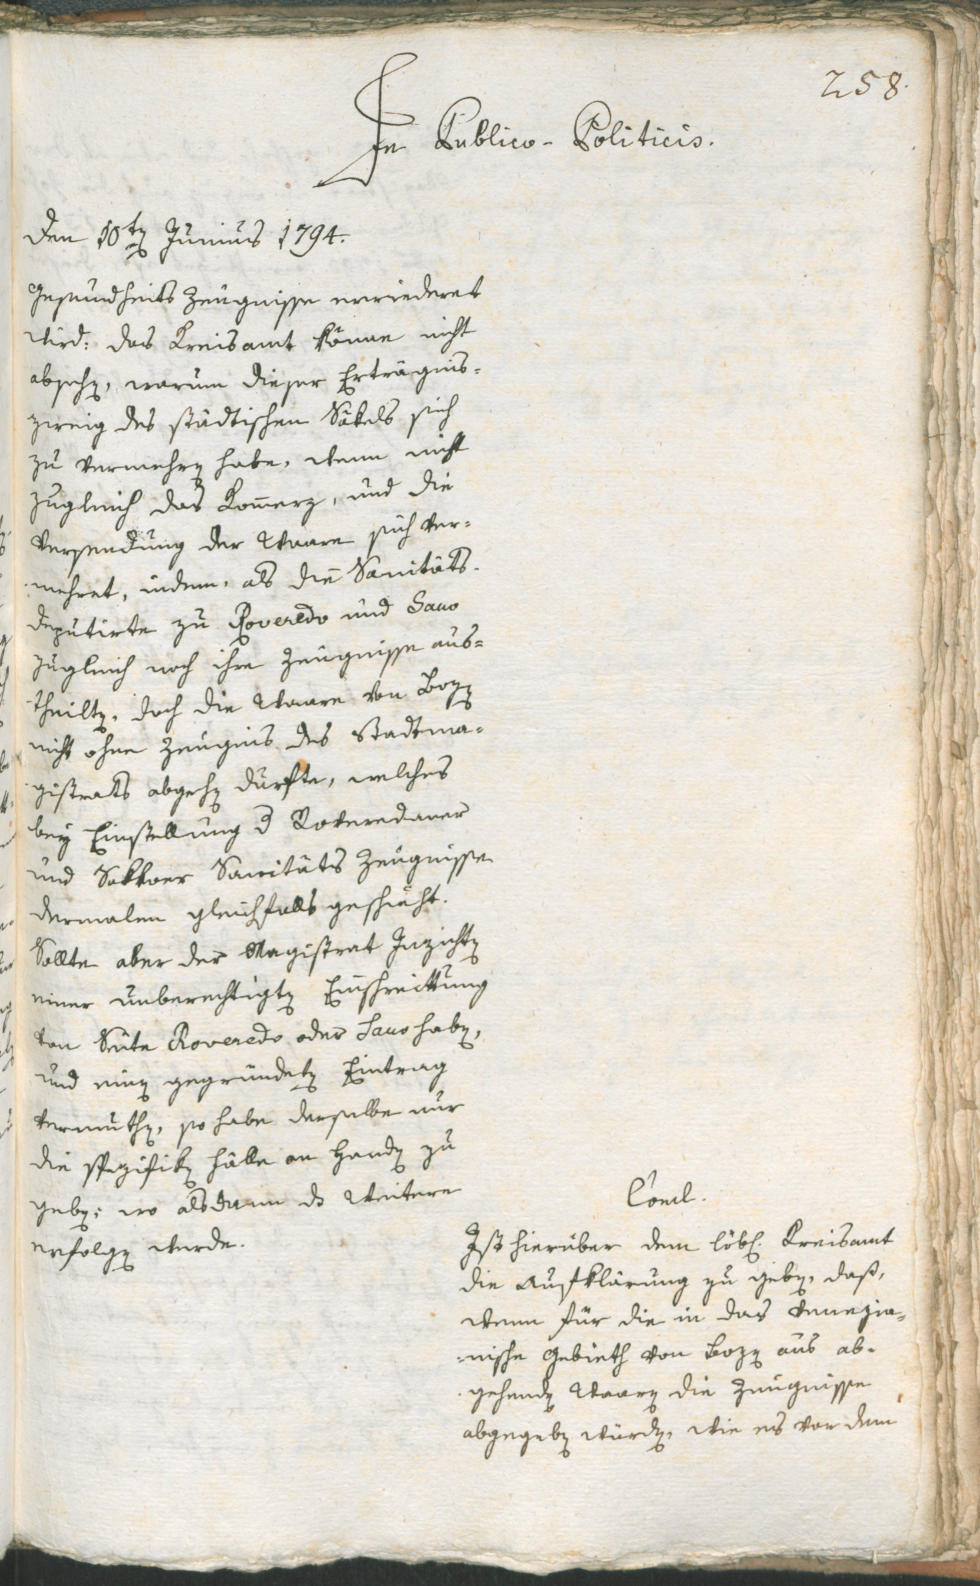 258.
In Publico-Politicis.
Den 10ten Junius 1794.
Gesundheits Zeugnisse erwiederet
wird: das Kreisamt könne nicht
absehen, warum dieser Erträgnis-
zweig des städtischen Säkels sich
zu vermehren habe, wenn nicht
zugleich das Komerz, und die
Versendung der Waare sich ver-
mehret, indem, als die Sanitäts-
deputirte zu Roveredo und Saco
zugleich noch ihre Zeugnisse aus-
theilten, doch die Waare von Bozen
nicht ohne Zeugnis des Stadtma-
gistrats abgehen durfte, welches
bey Einstellung der Roveredaner
und Sakkoer Sanitäts Zeugnisse
dermalen gleichfalls geschieht.
Sollte aber der Magistrat Inzichten
einer unberechtigten Einschreittung
von Seite Roveredo oder Saco haben,
und einen gegründeten Eintrag
vermuthen, so habe derselbe nur
die spezifiken Fälle an Handen zu
geben; wo alsdann das Weitere
erfolgen werde.
Concl.
Ist hierüber dem löbl. Kreisamt
die Aufklärung zu geben, daß,
wenn für die in das venezia-
nische Gebieth von Bozen aus ab-
gehenden Waaren die Zeugnisse
abgegeben würden, wie es vor dem